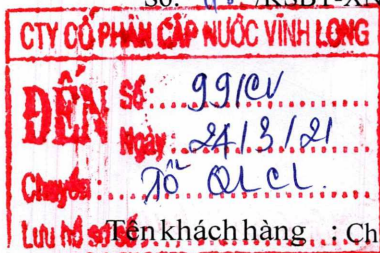 Số: /KSBT-XN
CTY CỔ PHẦN CẤP NƯỚC VĨNH LONG
ĐẾN
Số: 991CV
Ngày: 24/3/21
Chuyển: Tổ QLCL.
Lưu hồ sơ số:
Tên khách hàng : Ch